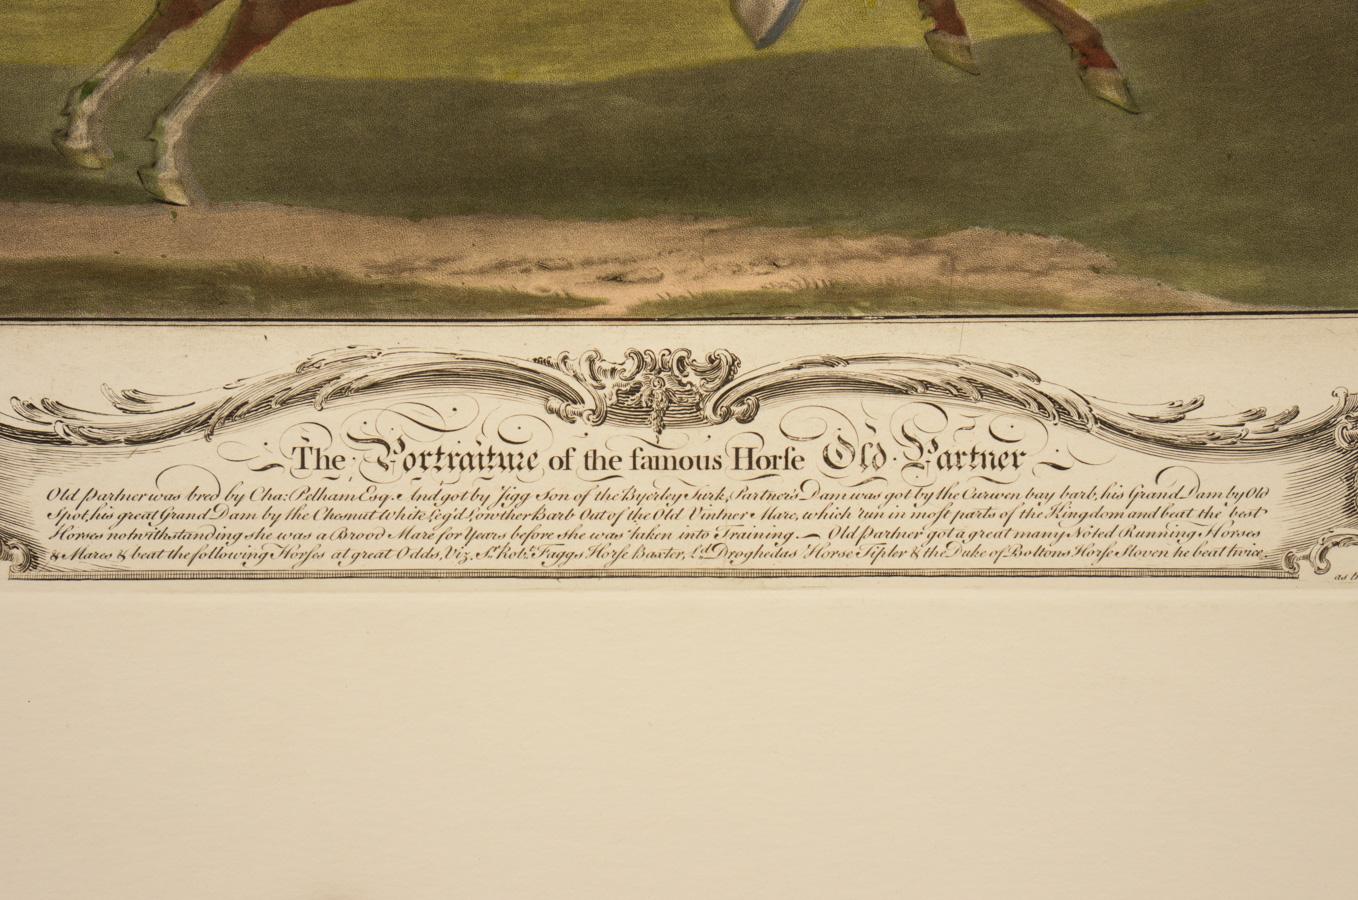 The Portraiture of the famous Horſe Old Partner
Old Partner was bred by Cha: Pelham Esq. And got by Jigg Son of the Byerley Turk, Partner's Dam was got by the Curwen bay barb, his Grand Dam by Old
Spot, his great Grand Dam by the Chesnut White leg'd Lowther Barb Out of the Old Vintner Mare, which run in moſt parts of the Kingdom and beat the best
Horses notwithstanding she was a Brood Mare for Years before She was taken into Training. — Old Partner got a great many Noted Running Horses
& Mares & beat the following Horſes at great Odds, Viz. Sr. Robt. Faggs Horſe Baxter, Ld. Droghedas Horse Tipler & the Duke of Boltons Horſe Sloven he beat twice
as